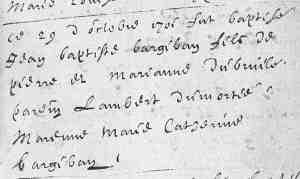 Marie
ce 29 d octobre 1705 fut baptise
Jean baptiste bargiban fils de
pierre et Marianne Dubrville
parein Lambert Dumortee
Marenne Marie Catherine
bargiban